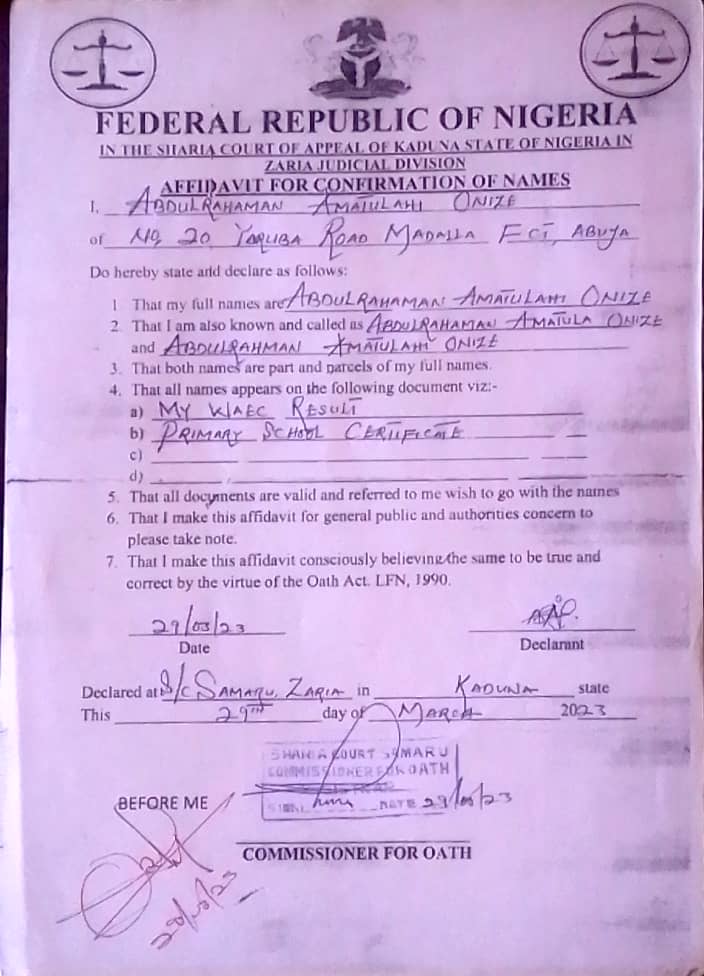 FEDERAL REPUBLIC OF NIGERIA
IN THE SHARIA COURT OF APPEAL OF KADUNA STATE OF NIGERIA IN
ZARIA JUDICIAL DIVISION
AFFIDAVIT FOR CONFIRMATION OF NAMES
I, ABDULRAHAMAN AMATULAHI ONIZE
of NO, 20 YORUBA ROAD MADALLA FCT, ABUJA
Do hereby state and declare as follows:
1 That my full names are ABDOULRAHAMAN AMATULAHI ONIZE
2. That I am also known and called as ABDULRAHAMAN AMATULA ONIZE
and ABDULRAHMAN AMATULAHI ONIZE
3. That both names are part and parcels of my full names.
4. That all names appears on the following document viz:-
a) MY WAEC RESULT
b) PRIMARY SCHOOL CERTIFICATE
c)
d)
5. That all documents are valid and referred to me wish to go with the names
6. That I make this affidavit for general public and authorities concern to
please take note.
7. That I make this affidavit consciously believing the same to be true and
correct by the virtue of the Oath Act. LFN, 1990.
29/03/23
Date
Declarant
Declared at S/C SAMARU, ZARIA in KADUNA state
This 29TH day of MARCH 2023
SHARIA COURT SAMARU
COMMISSIONER FOR OATH
SIGN. DATE 29/03/23
BEFORE ME
COMMISSIONER FOR OATH